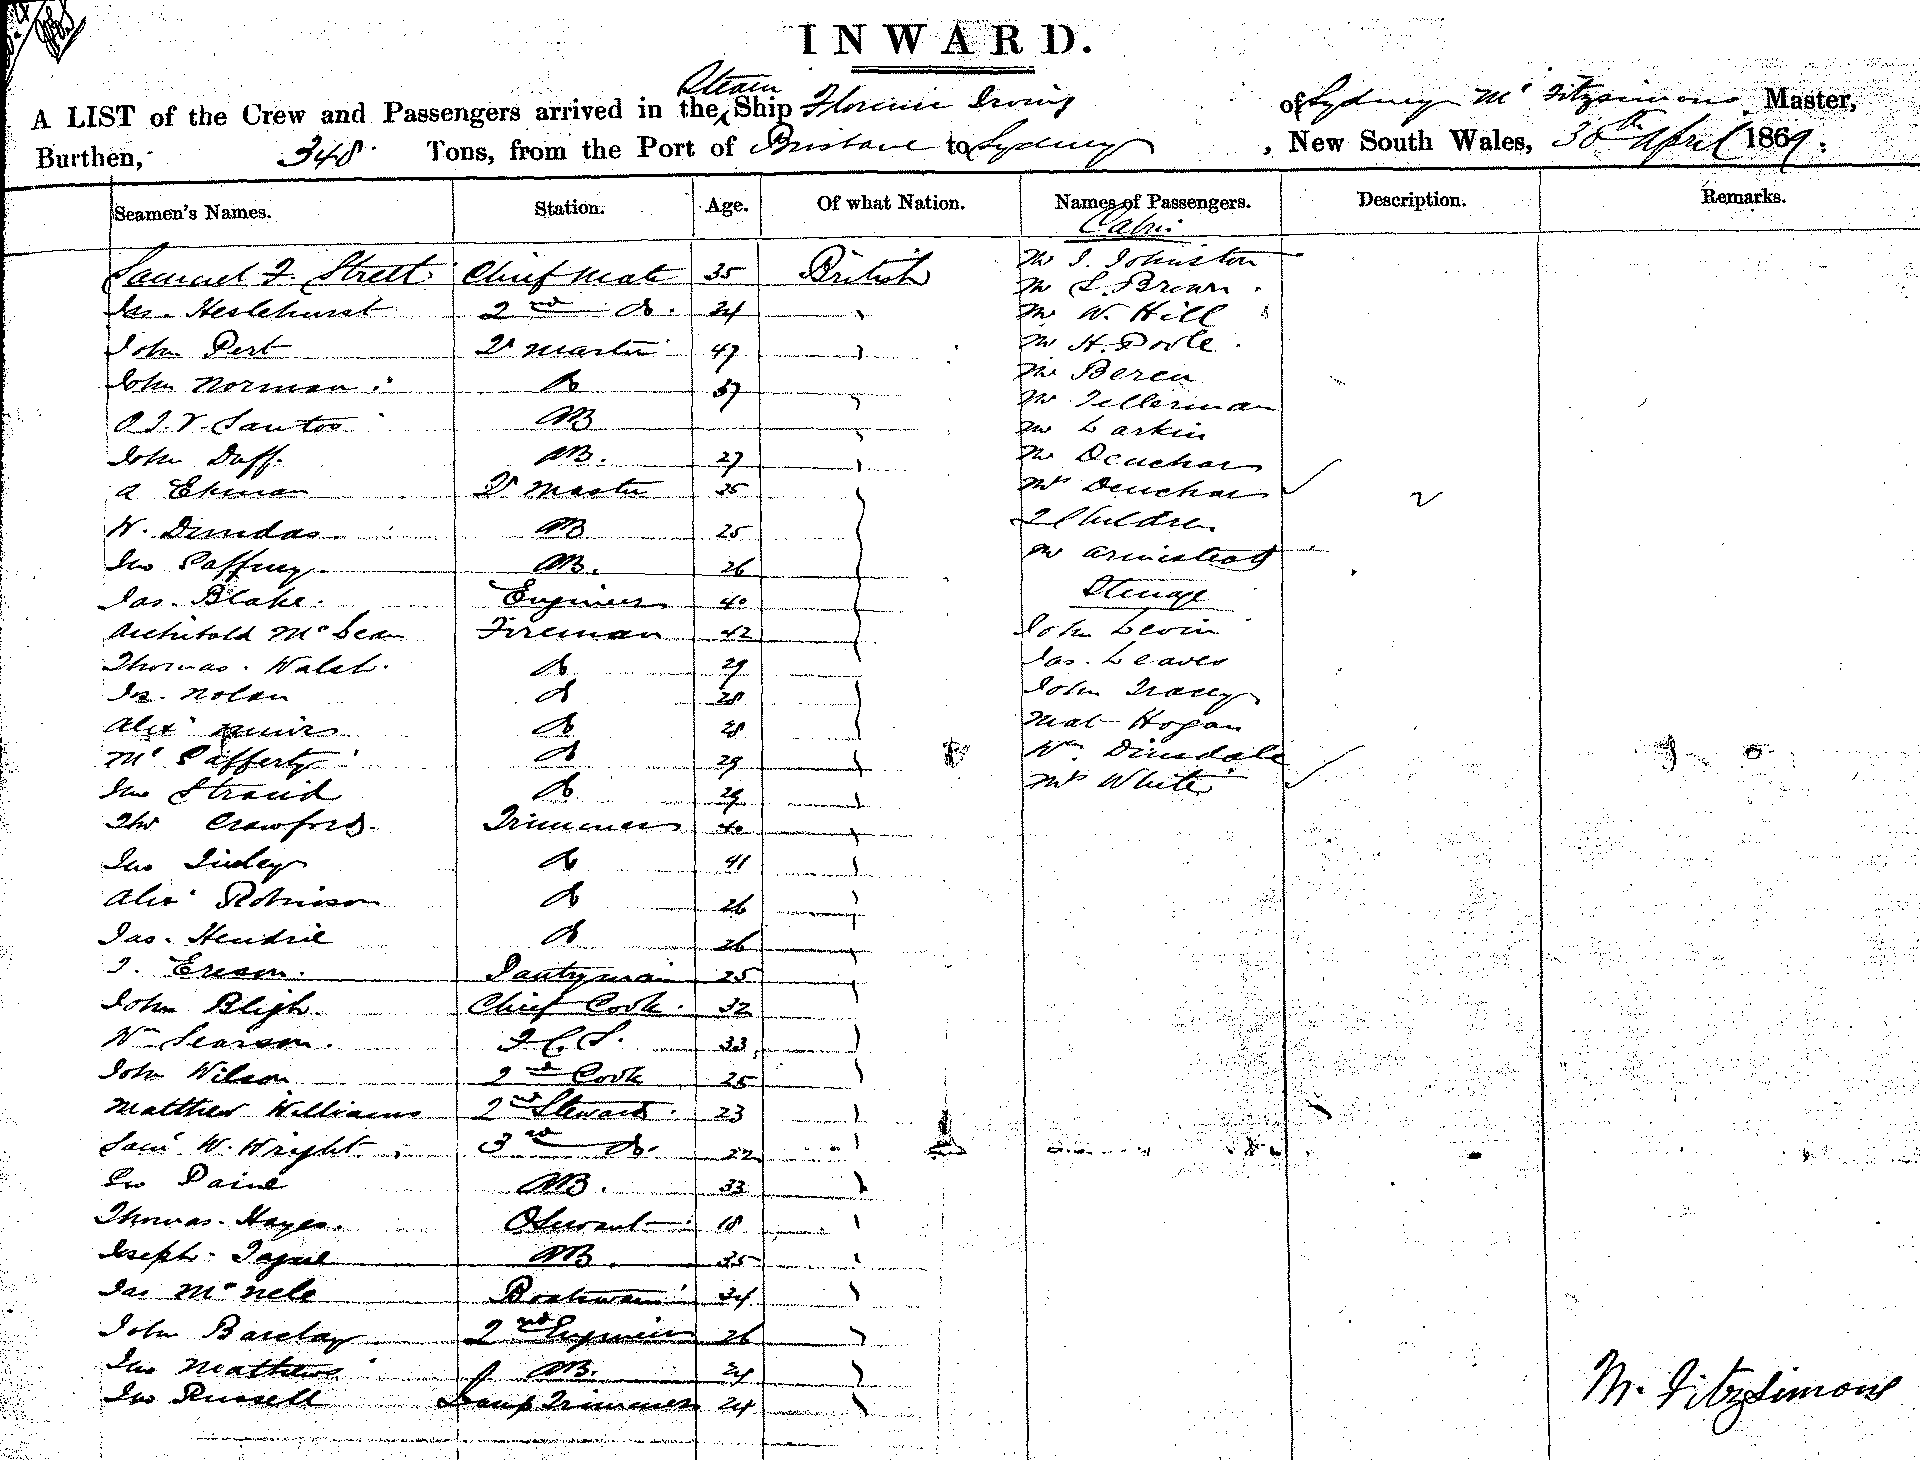 INWARD.
Steam
A LIST of the Crew and Passengers arrived in the Ship Florence Irving of Sydney Mr Fitzsimons Master,
Burthen, 348 Tons, from the Port of Brisbane to Sydney, New South Wales, 30th April 1869.
Seamen's Names. Station. Age. Of what Nation. Names of Passengers. Description. Remarks.
Cabin
Samuel F. Street Chief Mate 35 British Mr J. Johnston
Jas. Heslehurst 2nd Do. 24 " Mr L. Brown
Mr W. Hill
John Pert Qr Master 47 " Mr H. Poole
John Norman Do 37 " Mr Beren
O J V Santos AB " Mr Tellerman
Mr Larkin
John Duff AB. 27 " Mr Deuchar
A Ekman Qr Master 35 Mrs Deuchar 2
W. Dundas AB 25 2 Children
Jno Caffrey AB. 26 Mr Armistead
Jas. Blake Engineer 40 Steerage
Archibold McLean Fireman 42 John Levin
Thomas Walsh Do 29 Jas. Leaves
Js. Nolan Do 28 John Tracey
Alexr Muir Do 28 Mat Hogan
Mc Cafferty Do 29 Wm Dimsdale
Jno Straid Do 29 Mrs White
Thos Crawford Trimmer 40
Jno Tinley Do 41
Alexr Robinson Do 26
Jas. Hendrie Do 26
J. Ericson Pantryman 25
John Bligh Chief Cook 32
Wm Searson F C S. 33
John Wilson 2nd Cook 25
Matthew Williams 2nd Steward 23
Saml W. Wright 3rd Do. 22
Jno Paine AB. 33
Thomas Hayes O Servant 18
Joseph Tague AB 35
Jas McNele Boatswain 34
John Barclay 2nd Engineer 26
Jno Mathews AB. 24
Jno Russell Lamp Trimmer 24
M. Fitzsimons